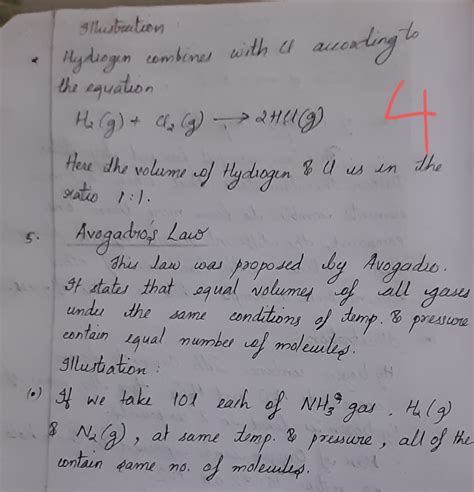 Illustration
* Hydrogen combines with Cl according to
the equation
H₂(g) + Cl₂(g) → 2HCl(g)
4
Here the volume of Hydrogen & Cl is in the
ratio 1:1.
5. Avogadro's Law
This law was proposed by Avogadro.
It states that equal volumes of all gases
under the same conditions of temp. & pressure
contain equal number of molecules.
Illustration :
(*) If we take 10l each of NH₃ gas. H₂(g)
& N₂(g), at same temp. & pressure, all of the
contain same no. of molecules.